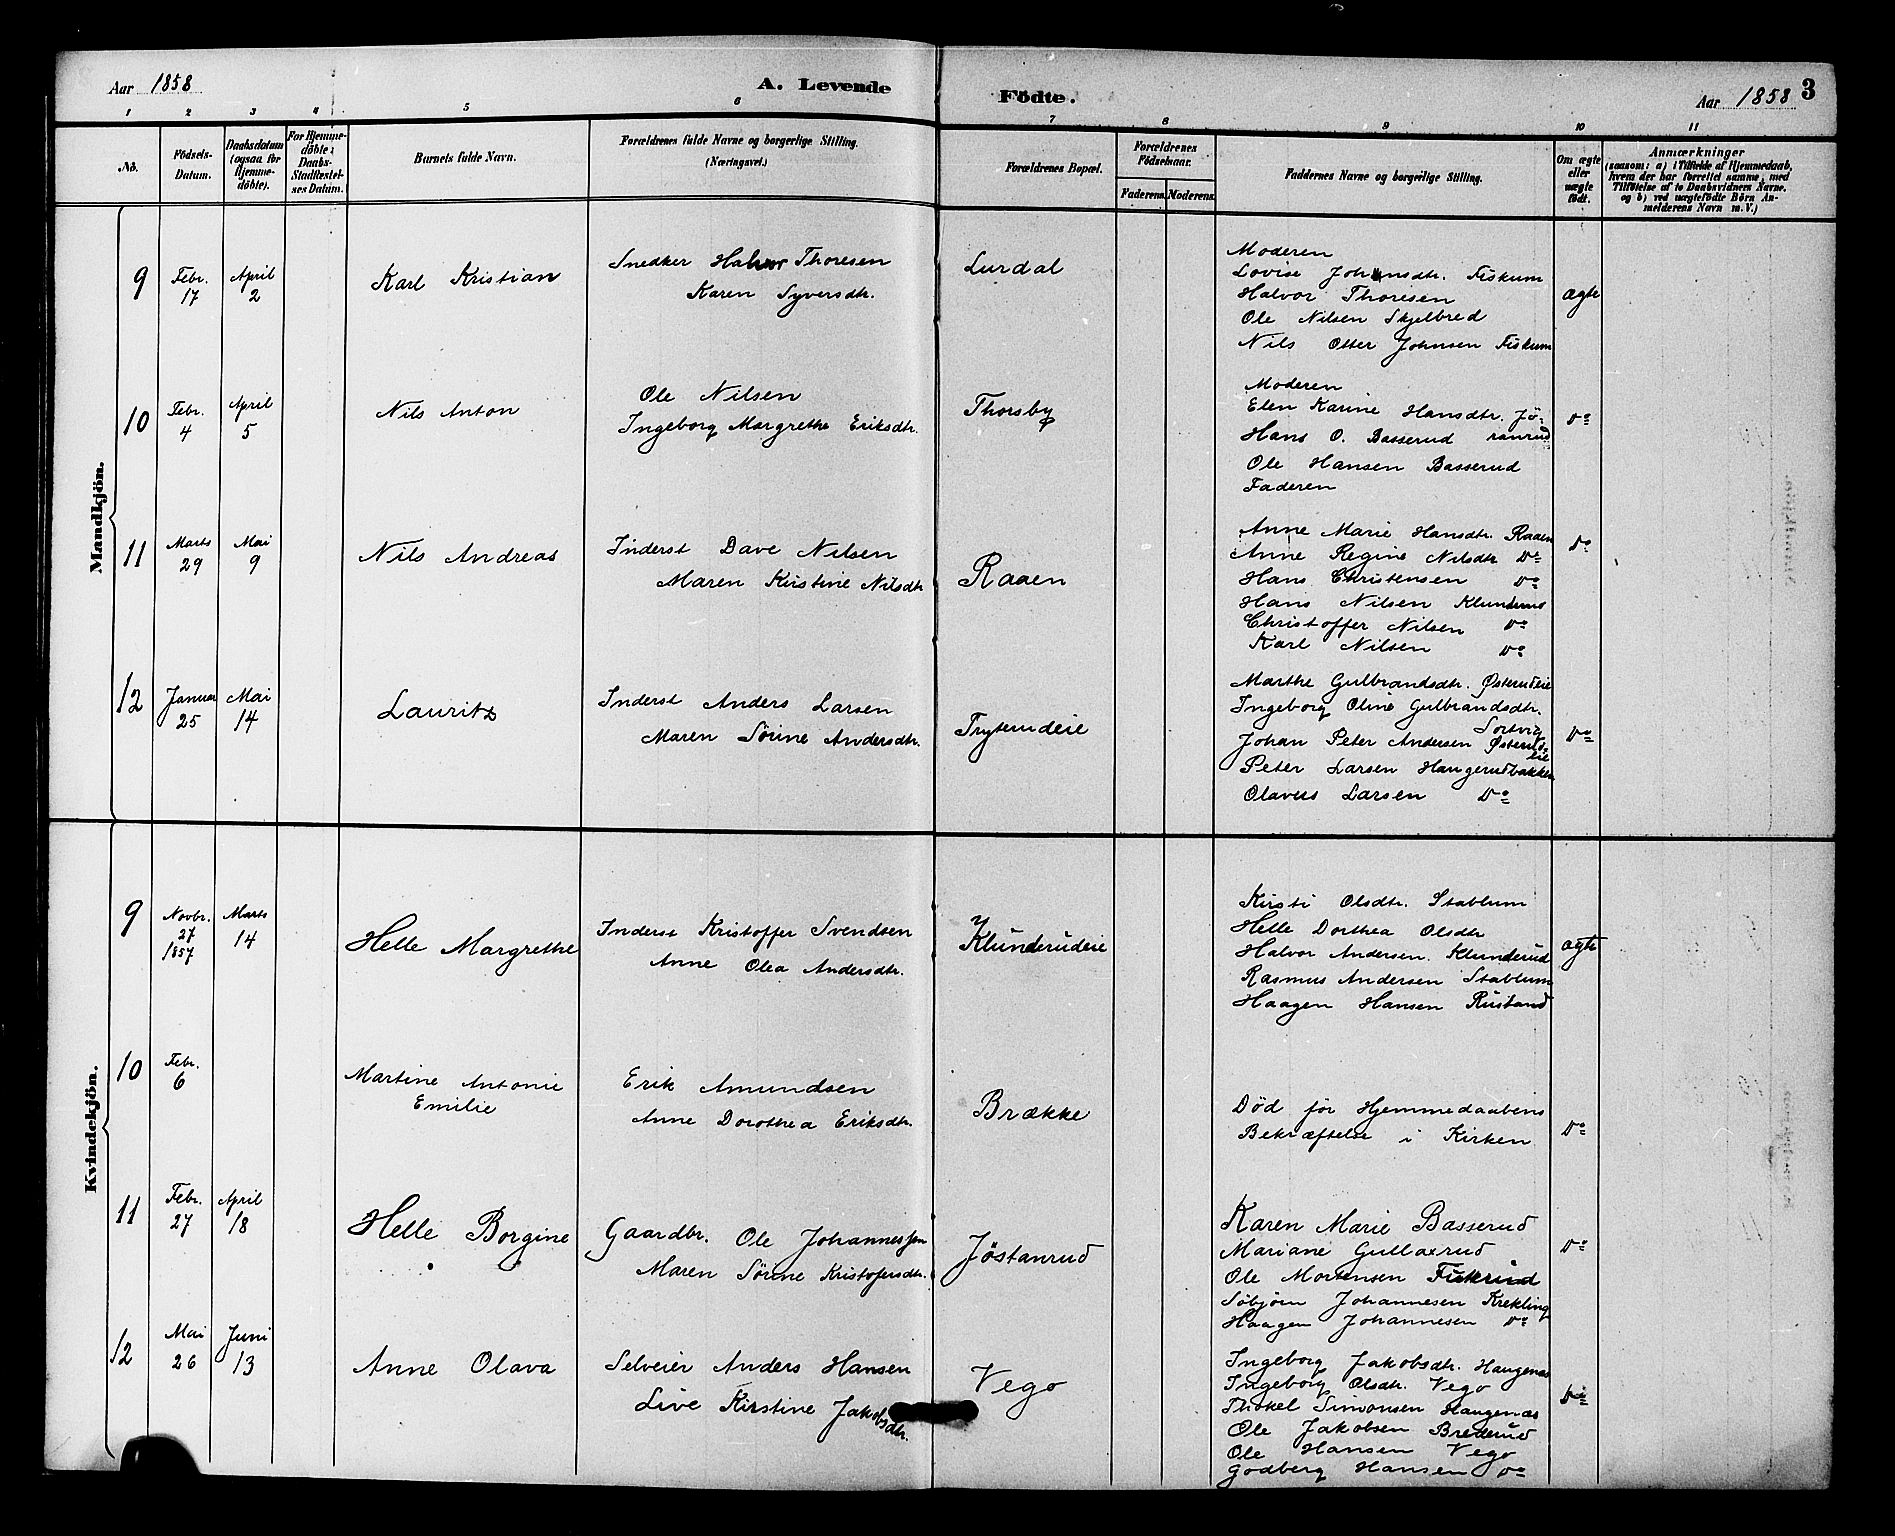 Aar 1858
A. Levende Födte.
Aar 1858 3
1 2 3 4 5 6 7 8 9 10 11
No. Födsels-Datum. Daabsdatum (ogsaa for Hjemme-döbte). For Hjemme-döbte: Daabs-Stadfæstel-ses Datum. Barnets fulde Navn. Forældrenes fulde Navne og borgerlige Stilling. (Næringsvei.) Forældrenes Bopæl. Forældrenes Födselsaar. Faderens. Moderens. Faddernes Navne og borgerlige Stilling. Om ægte eller uægte födt. Anmærkninger (saasom: a) i Tilfælde af Hjemmedaab, hvem der har forrettet samme, med Tilföielse af to Daabsvidners Navne. og b) ved uægtefödte Börn An-melderens Navn m. V.)
Mandkjön.
9 Febr. 17 April 2 Karl Kristian
Snedker Thoresen
Karen Syversdtr.
Lurdal
Moderen
Lovise Johansdtr. Fiskum
Halvor Thoresen
Ole Nilsen Skjelbred
Nils Otter Johnsen Fiskum
ægte
10 Febr. 4 April 5 Nils Anton
Ole Nilsen
Ingeborg Margrethe Eriksdtr.
Thorsby
Moderen
Elen Karine Hansdtr. Jö-
Hans O. Basserud ranrud
Ole Hansen Basserud
Faderen
Do
11 Marts 29 Mai 9 Nils Andreas
Inderst Dave Nilsen
Maren Kristine Nilsdtr
Raaen
Anne Marie Hansdtr. Raaen
Anne Regine Nilsdtr Do
Hans Christensen Do
Hans Nilsen
Christoffer Nilsen Do
Karl Nilsen Do
Do
12 Januar 25 Mai 14 Lauritz
Inderst Anders Larsen
Maren Sörine Andersdtr.
Tryterudeie
Marthe Gulbrandsdtr. Østerudeie
Ingeborg Oline Gulbrandsdtr.
Sortvig
Johan Peter Andersen Østerud-
eie
Peter Larsen Haugerudbakken
Olaves Larsen Do
Do
Kvindekjön.
9 Novbr. 27 1857 Marts 14 Helle Margrethe
Inderst Kristoffer Svendsen
Anne Olea Andersdtr.
Klunderudeie
Kirsti Olsdtr. Stablum
Helle Dorthea Olsdtr
Halvor Andersen. Klunderud
Rasmus Andersen Stablum
Haagen Hansen Rustand
ægte
10 Febr. 6 Martine Antonie
Emilie
Erik Amundsen
Anne Dorothea Eriksdtr.
Brække
Død før Hjemmedaabens
Bekræftelse i Kirken
Do
11 Febr. 27 April 18 Helle Borgine
Gaardbr. Ole Johannessen
Maren Sörine Kristofersdtr.
Jøstanrud
Karen Marie Basserud
Mariane Gullaxrud
Ole Mortensen
Søbjørn Johannesen Krekling
Haagen Johannesen Do
Do
12 Mai 26 Juni 13 Anne Olava
Selveier Anders Hansen
Live Kirstine Jakobsdtr.
Vego
Ingeborg Jakobsdtr. Haugenæs
Ingeborg Olsdtr. Vego
Thokel Simonsen Haugenæs
Ole Jakobsen Brederud
Ole Hansen Vego
Godberg Hansen Do
Do